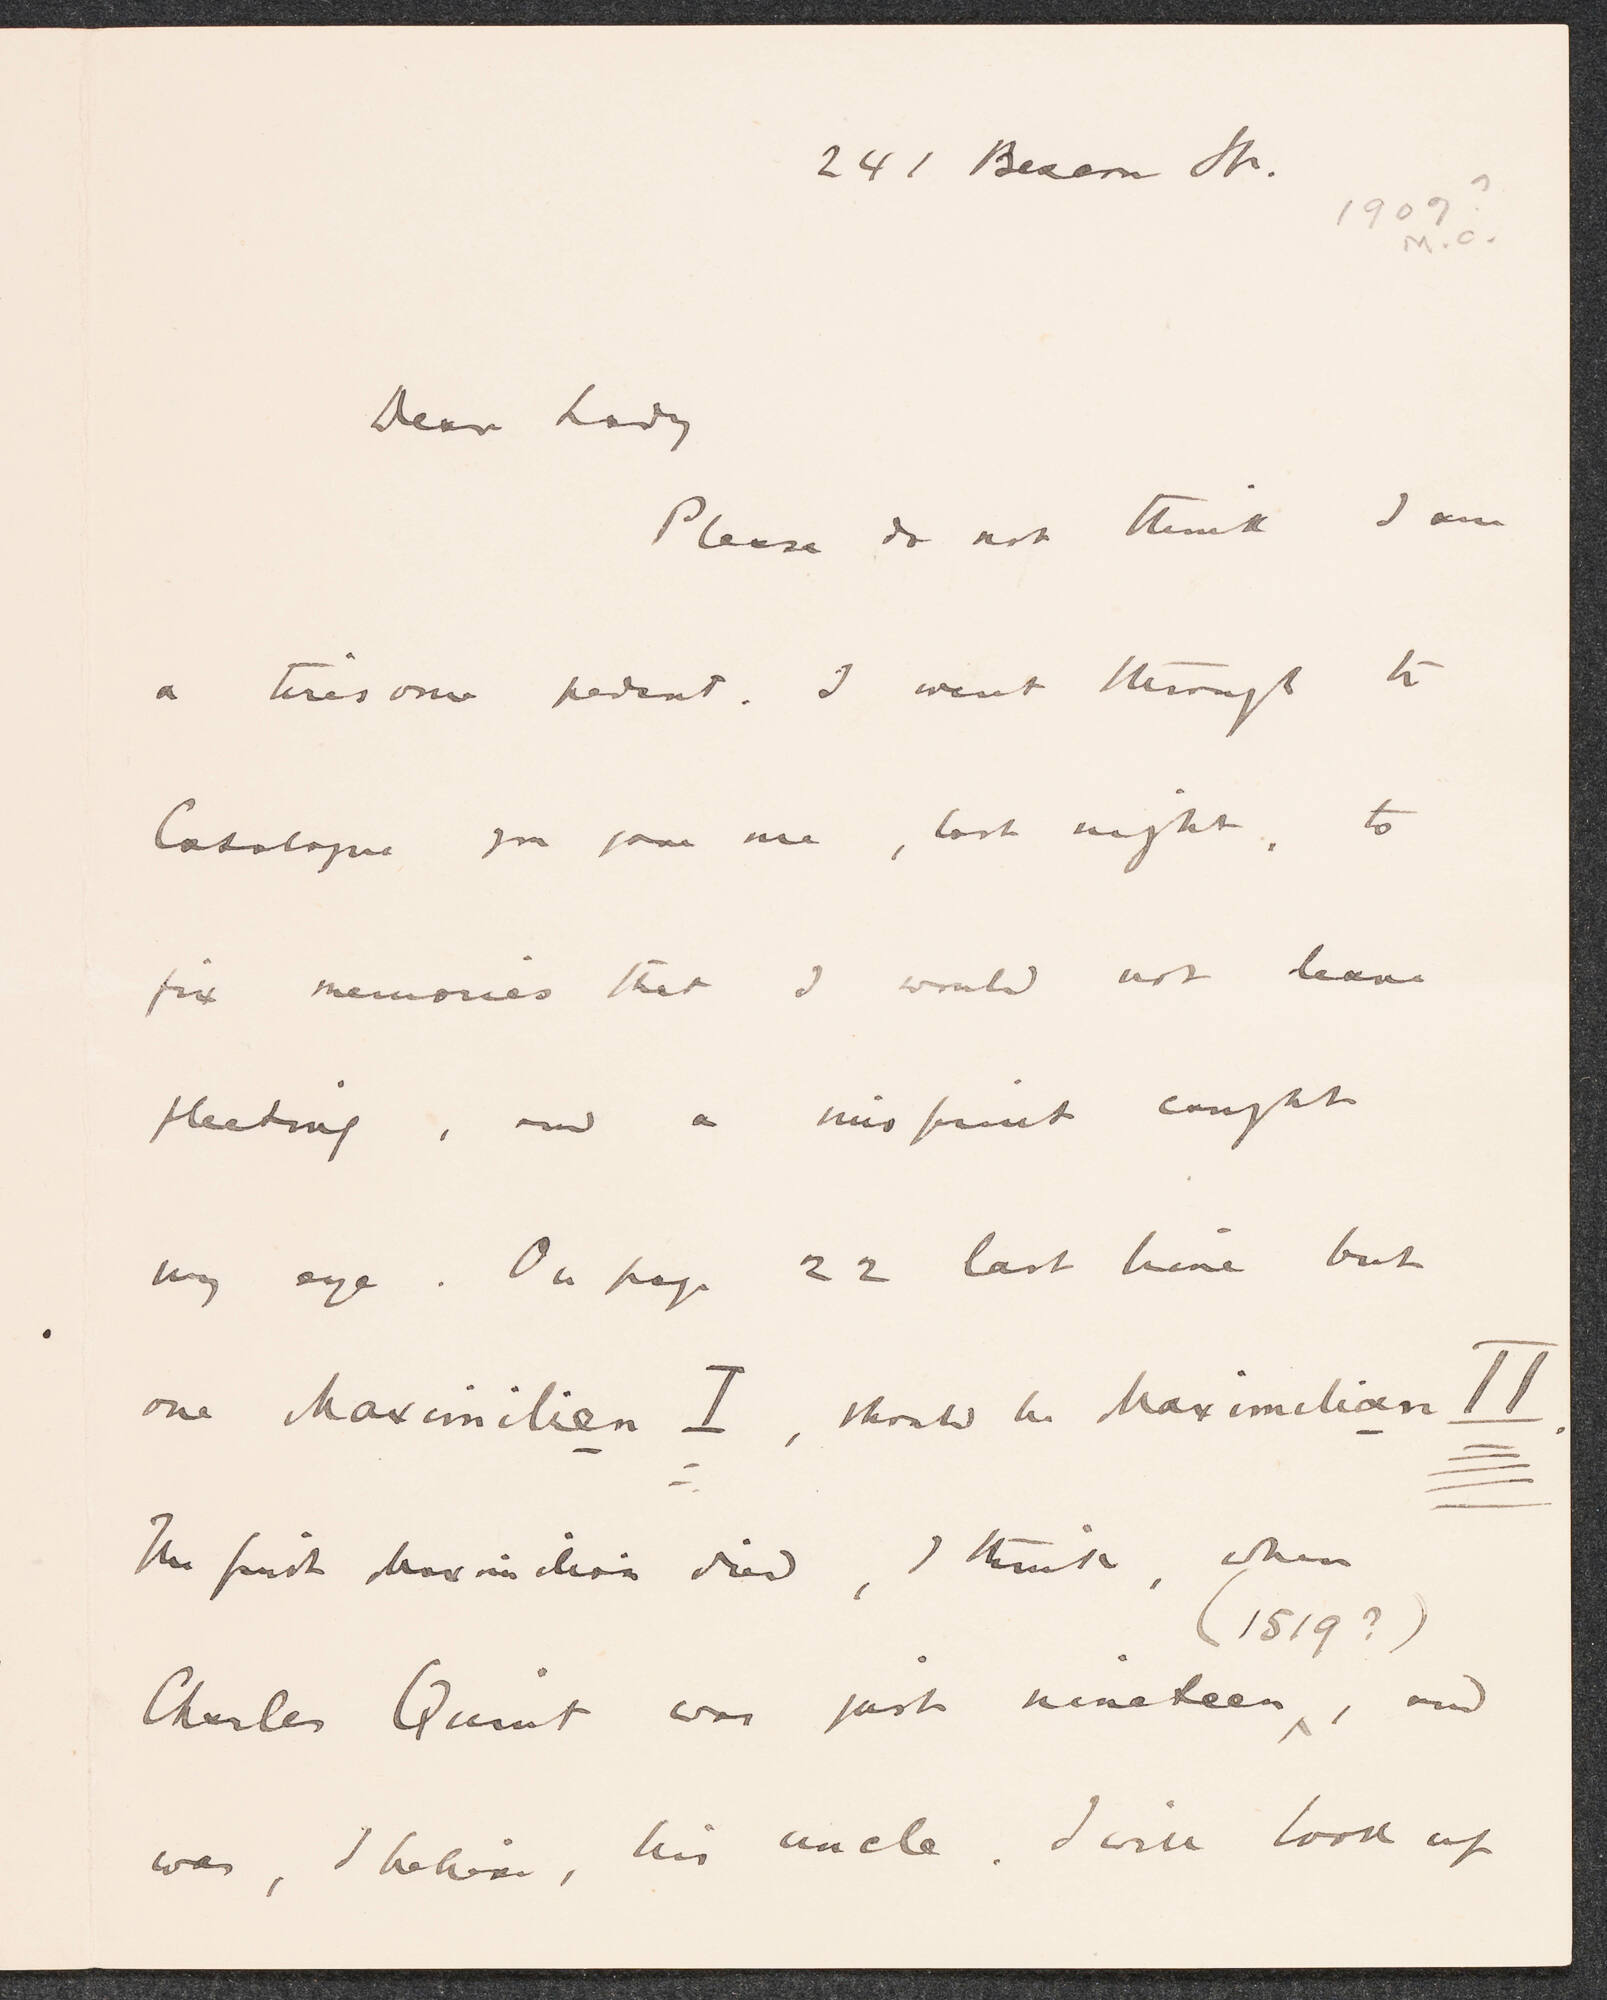 241 Beacon St.
1907?
M.C.
Dear Lady
Please do not think I am
a tiresome pedant. I went through the
Catalogue you gave me, last night, to
fix memories that I would not leave
fleeting, and a misprint caught
my eye. On page 22 last line but
one Maximilien I, should be Maximilian II.
The first Maximilian died, I think, when
(1519?)
Charles Quint was just nineteen ^, and
was, I believe, his uncle. I will look up